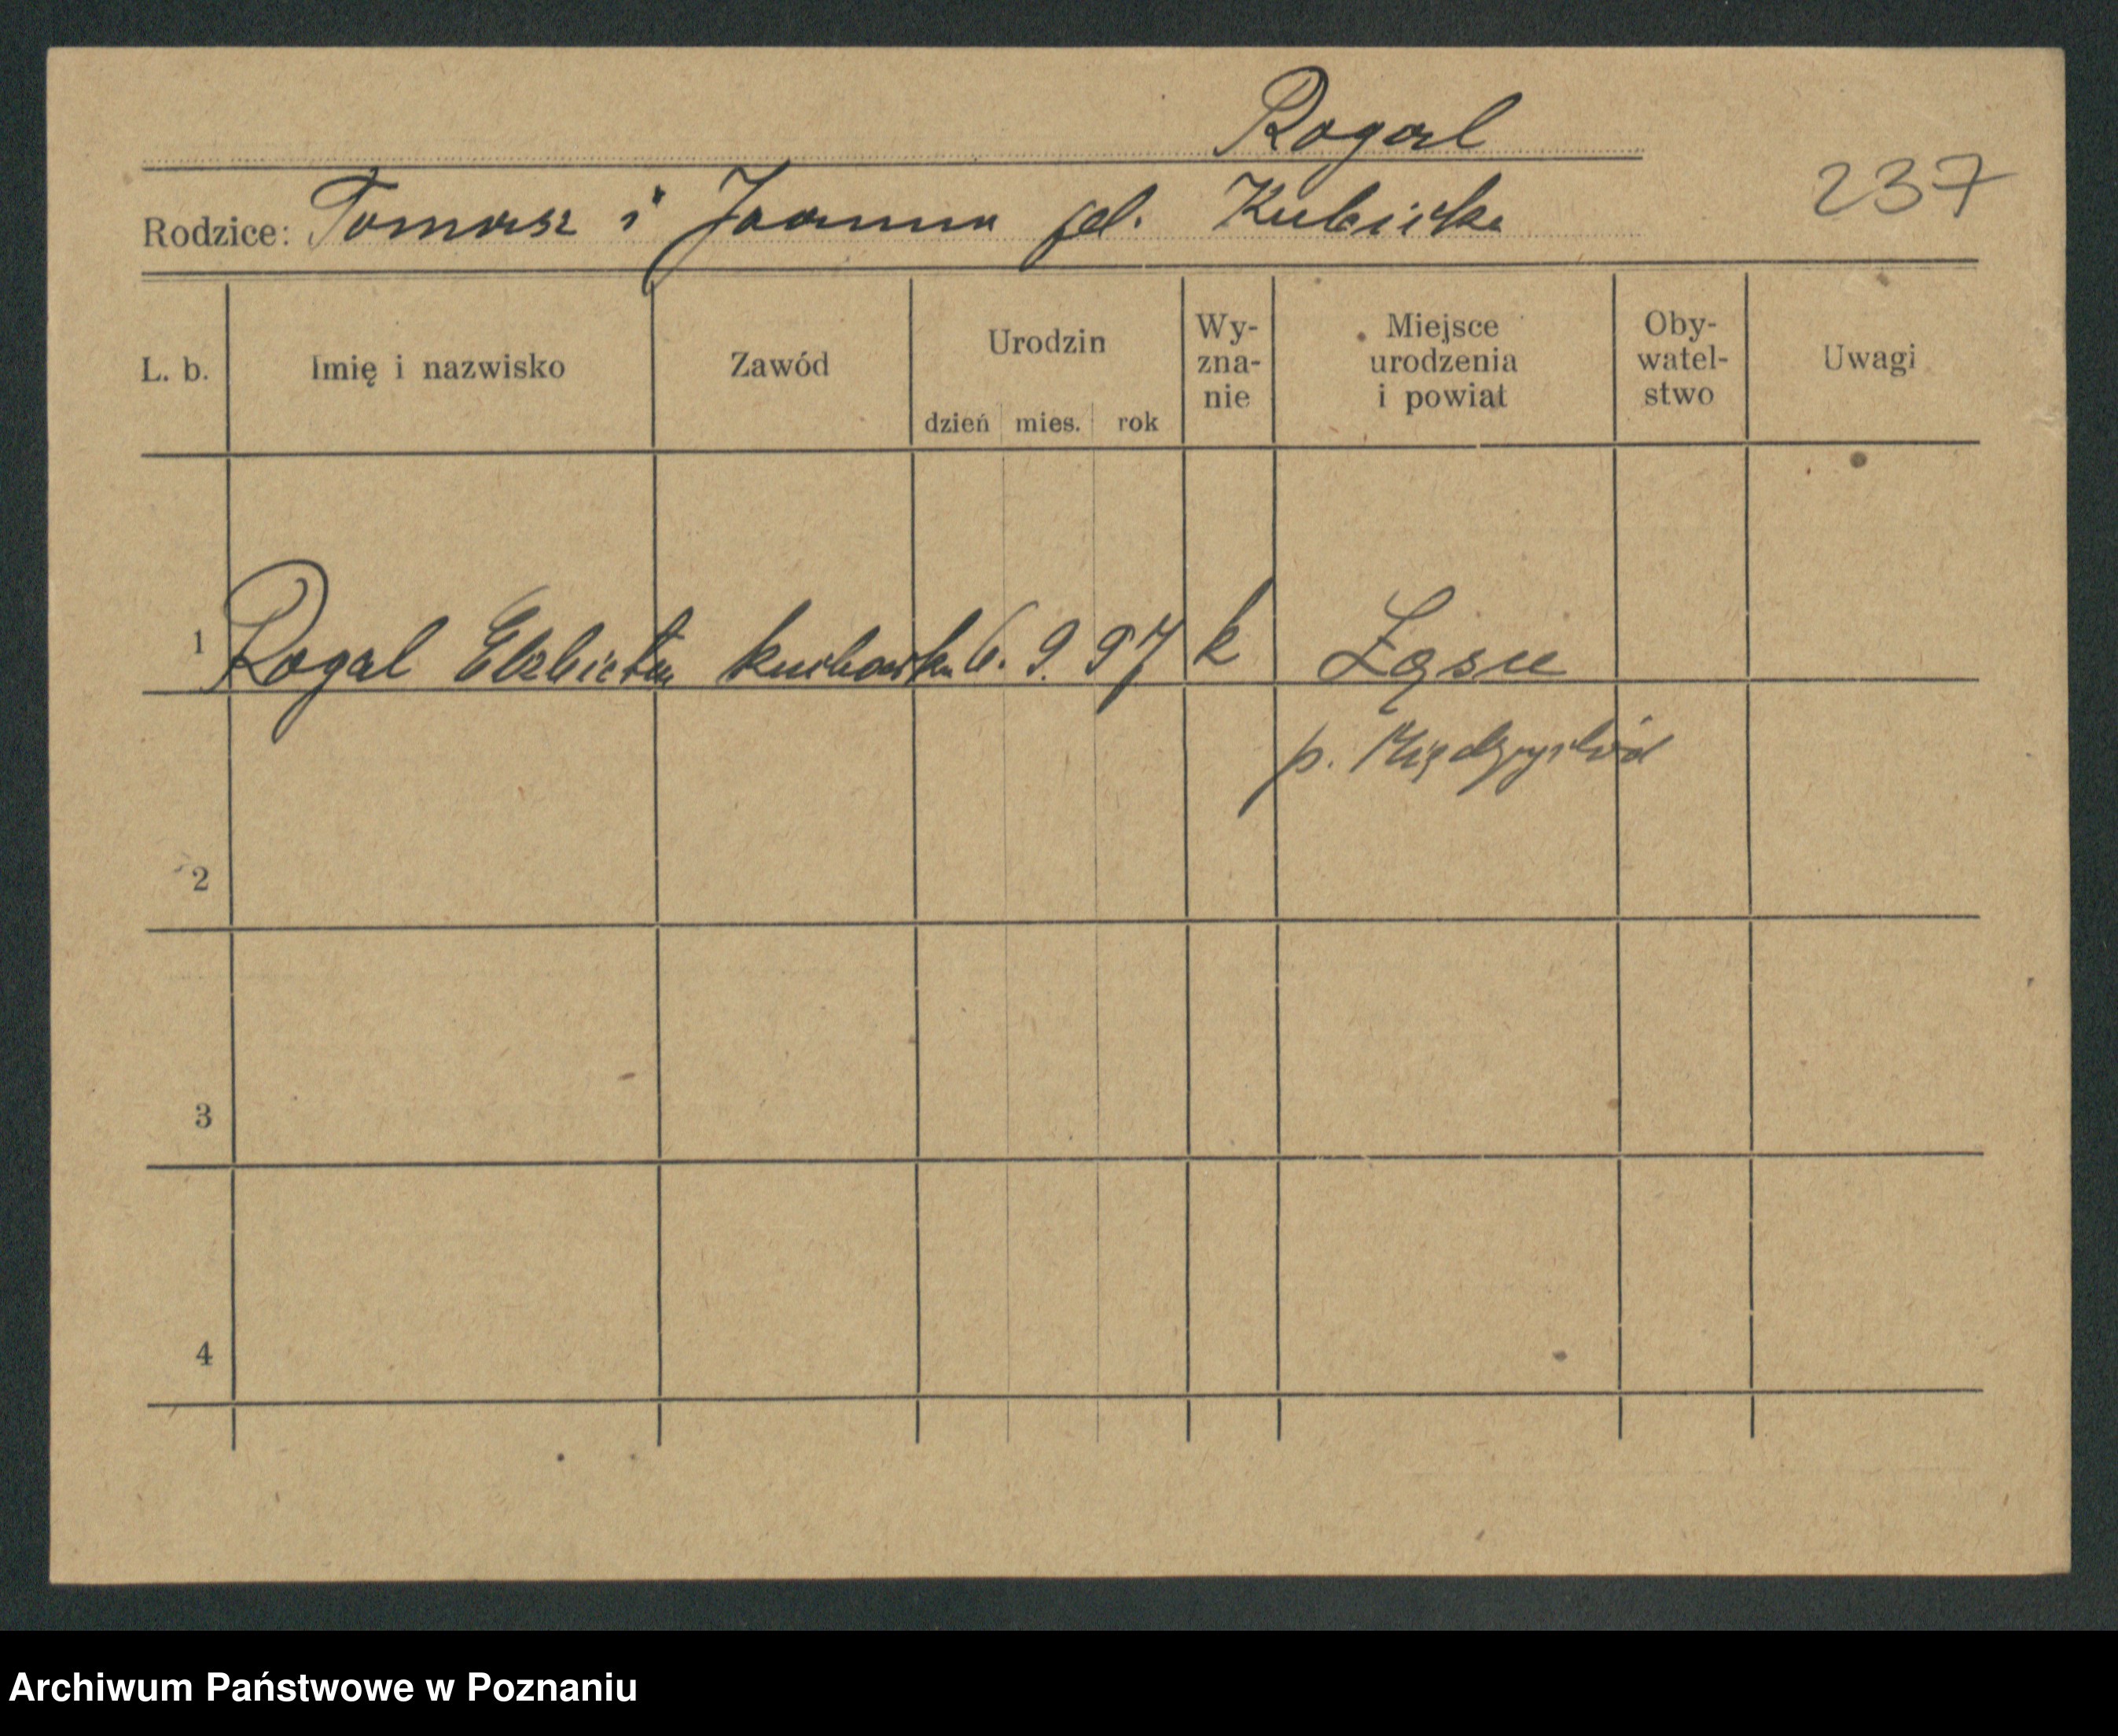 Rogal
237
Rodzice: Tomasz i Joanna fd. Kubicka
L. b. Imię i nazwisko Zawód Urodzin dzień mies. rok Wy-zna-nie Miejsce urodzenia i powiat Oby-watel-stwo Uwagi
1 Rogal Elzbieta kucharka 6. 9. 97 k
p. Międzychód
2
3
4
Archiwum Państwowe w Poznaniu